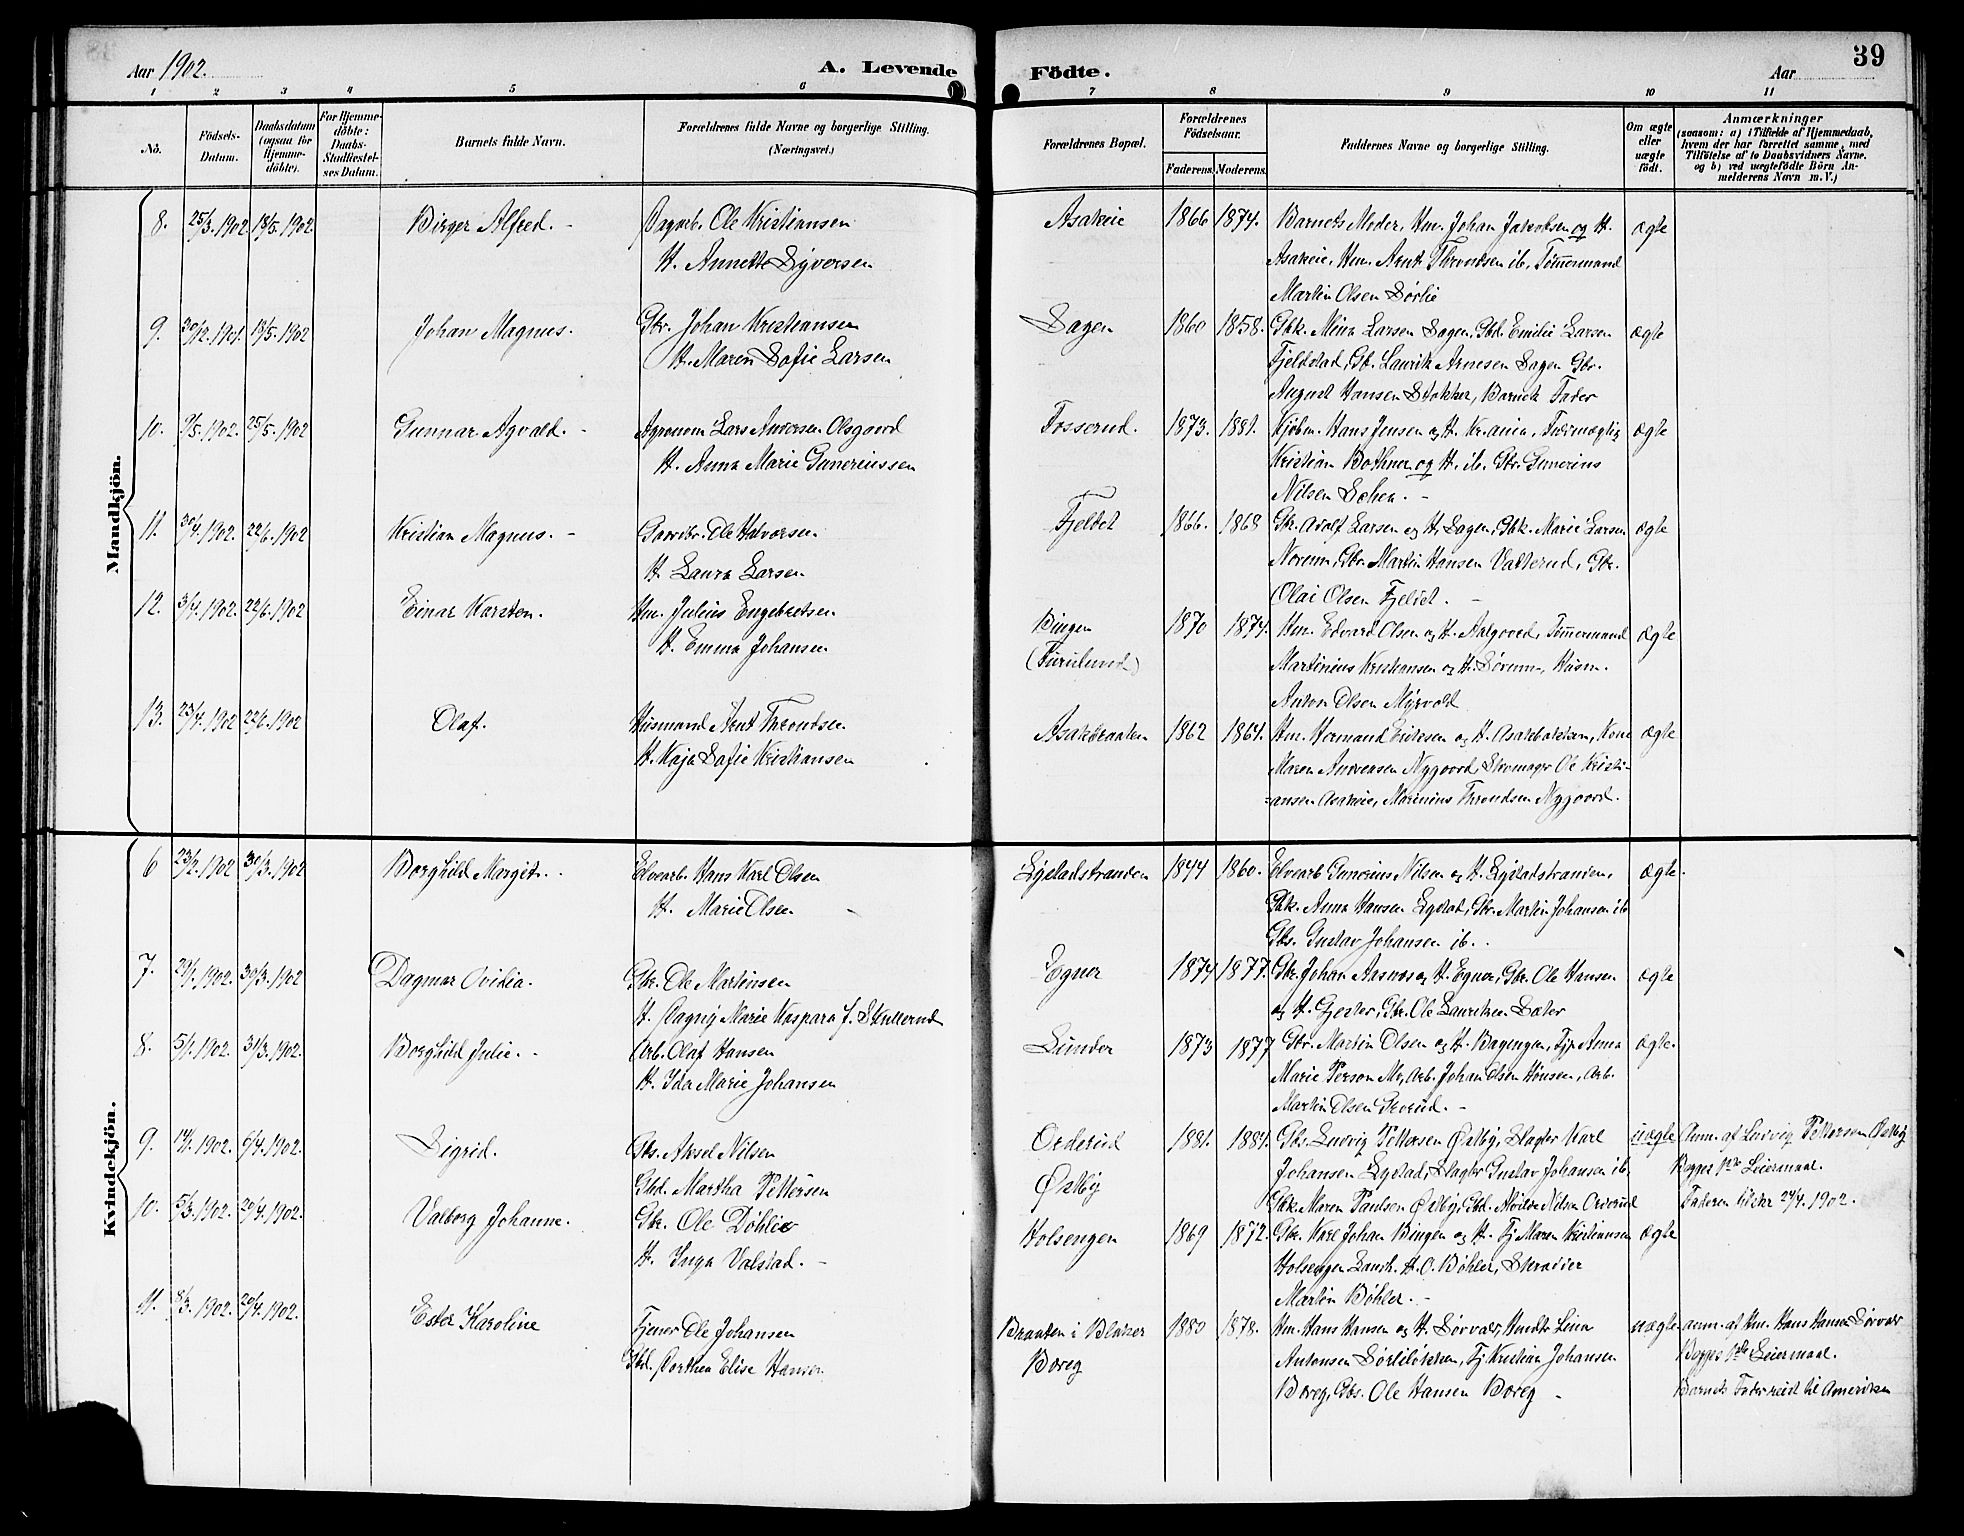 Aar 1902.
A. Levende Födte.
Aar
39
1 2 3 4 5 6 7 8 9 10 11
No.
Födsels-Datum.
Daabsdatum (ogsaa for Hjemmedöbte).
For Hjemmedöbte: Daabs-Stadfæstelses Datum.
Barnets fulde Navn.
Forældrenes fulde Navne og borgerlige Stilling.
(Næringsvei.)
Forældrenes Bopæl.
Forældrenes Födselsaar.
Faderens. Moderens.
Faddernes Navne og borgerlige Stilling.
Om ægte eller uægte födt.
Anmærkninger
(saasom: a) i Tilfælde af Hjemmedaab,
hvem der har forrettet samme, med
Tilföielse af to Daabsvidners Navne,
og b) ved uægtefödte Börn An-
melderens Navn m. V.)
Mandkjön.
8. 25/3.1902 18/5.1902. Birger Alfred. Dagarb. Ole Kristiansen Asakeie 1866 1874. Barnets Moder, Hm. Johan Jakobsen og H. ægte
H. Annette Syversen Asakeie, Hm. Arnt Throndsen ib, Tømmermand
Martin Olsen Sørlie
9. 30/12.1901. 18/5.1902 Johan Magnus. Gbr. Johan Kristiansen Sagen 1860 1858. Gbk. Mina Larsen Sagen, Gbd. Emilie Larsen ægte
H. Maren Sofie Larsen Fjeldstad, Gb. Laurits Arnesen Sagen Gbr.
August Hansen Stokker, Barnets Fader
10. 9/5.1902. 25/5.1902 Gunnar Agvald. Agronom Lars Andersen Olsgaard Fosserud. 1873. 1881. Kjøbm. Hans Jensen og H. Kr.ania, ægte
H. Anna Marie Gunerussen Kristian Bothner og H. ib. Gbr. Gunerius
Nilsen
11. 30/4.1902. 22/6.1902 Kristian Magnus. Gaardbr. Ole Halvorsen Fjeldet 1866. 1868 Gbr. Adolf Larsen og H. Sagen, Gbk. Marie Larsen ægte
H. Laura Larsen Norum, Gbr. Martin Hansen Valterud, Gbr.
Olai Olsen Fjeldet.
12. 3/4.1902. 22/6.1902 Einar Karsten. Hm. Julius Engebretsen Bingen 1870 1874. Hm. Edvard Olsen og H. Aalgaard, Tømmermand ægte
H. Emma Johansen (Furulund) Martinius Kristiansen og H. Sørum, Husm.
Anton Olsen Myrvold
13. 23/4.1902 22/6.1902 Olaf. Husmand Arnt Throndsen Asakbraaten 1862 1864. Hm. Herman Eriksen og H. Asakbakken, Kone ægte
H. Kaja Sofie Kristiansen Maren Andersen Nygaard, Skomager Ole Kristi-
ansen Asakeie, Marinius Throndsen Nygaard.
Kvindekjön.
6 23/2.1902 30/3.1902 Borghild Margit. Elvearb. Hans Karl Olsen Lystadstranden 1844 1860. Elvearb Gunerius Nilsen og H. Lystadstranden, ægte.
H. Marie Olsen Gbk. Anna Hansen Lystad, Gbr. Martin Johansen ib
Gbs. Gustav Johansen ib.
7. 29/1.1902. 30/3.1902 Dagmar Ovidia. Gbr. Ole Martinsen Egner 1874 1877. Gbr. Johan Aasnæs og H. Egner, Gbr. Ole Hansen ægte
H. Dagny Marie Kaspara f. Skullerud og H. Gjester, Gbr. Ole Lauritsen Sæter
8. 5/1.1902. 31/3.1902. Borghild Julie. Arb. Olaf Hansen Lunder 1873 1877 Gbr. Martin Olsen og H. Bagengen, Tjp Anna ægte.
H. Ida Marie Johansen Marie Person Mo, Arb. Johan Olsen Hønsen, Arb.
Martin Olsen
9. 14/1.1902. 6/4.1902. Sigrid. Gbs. Aksel Nilsen Orderud 1881. 1884. Gbs. Ludvig Pettersen Østby, Slagter Karl uægte Anm. af Ludvig Pettersen Østby
Gbd. Martha Pettersen Østby Johansen Lystad, Slagter Gustav Johansen ib. Begges 1ste Leiermaal.
Gbk. Maren Paulsen Østby, Gbd. Alvilde Nilsen Orderud Faderen tilstår 24/4.1902.
10. 5/3.1902. 20/4.1902. Valborg Johanne. Gbr. Ole Døhlie Holsengen 1869 1872. Gbr. Karl Johan Bingen og H. Tj Maren Kristiansen ægte
H. Inga Valstad. Holsengen Landh. H.O. Bøhler, Skrædder
Martin Bøhler.
11. 8/3.1902. 20/4.1902. Ester Karoline Tjener Ole Johansen Braaten i Blaker 1880 1878. Hm. Hans Hansen og H. Sørvald, Hmdtr Lina uægte anm. af Hm. Hans Hansen Sørvald
Gbd. Dorthea Elise Hansen Boreg Antonsen Sørliløkken, Tj Kristian Johansen Begges 1ste Leiermaal.
Boreg, Gbs. Ole Hansen Boreg Barnets Fader reist til Amerika